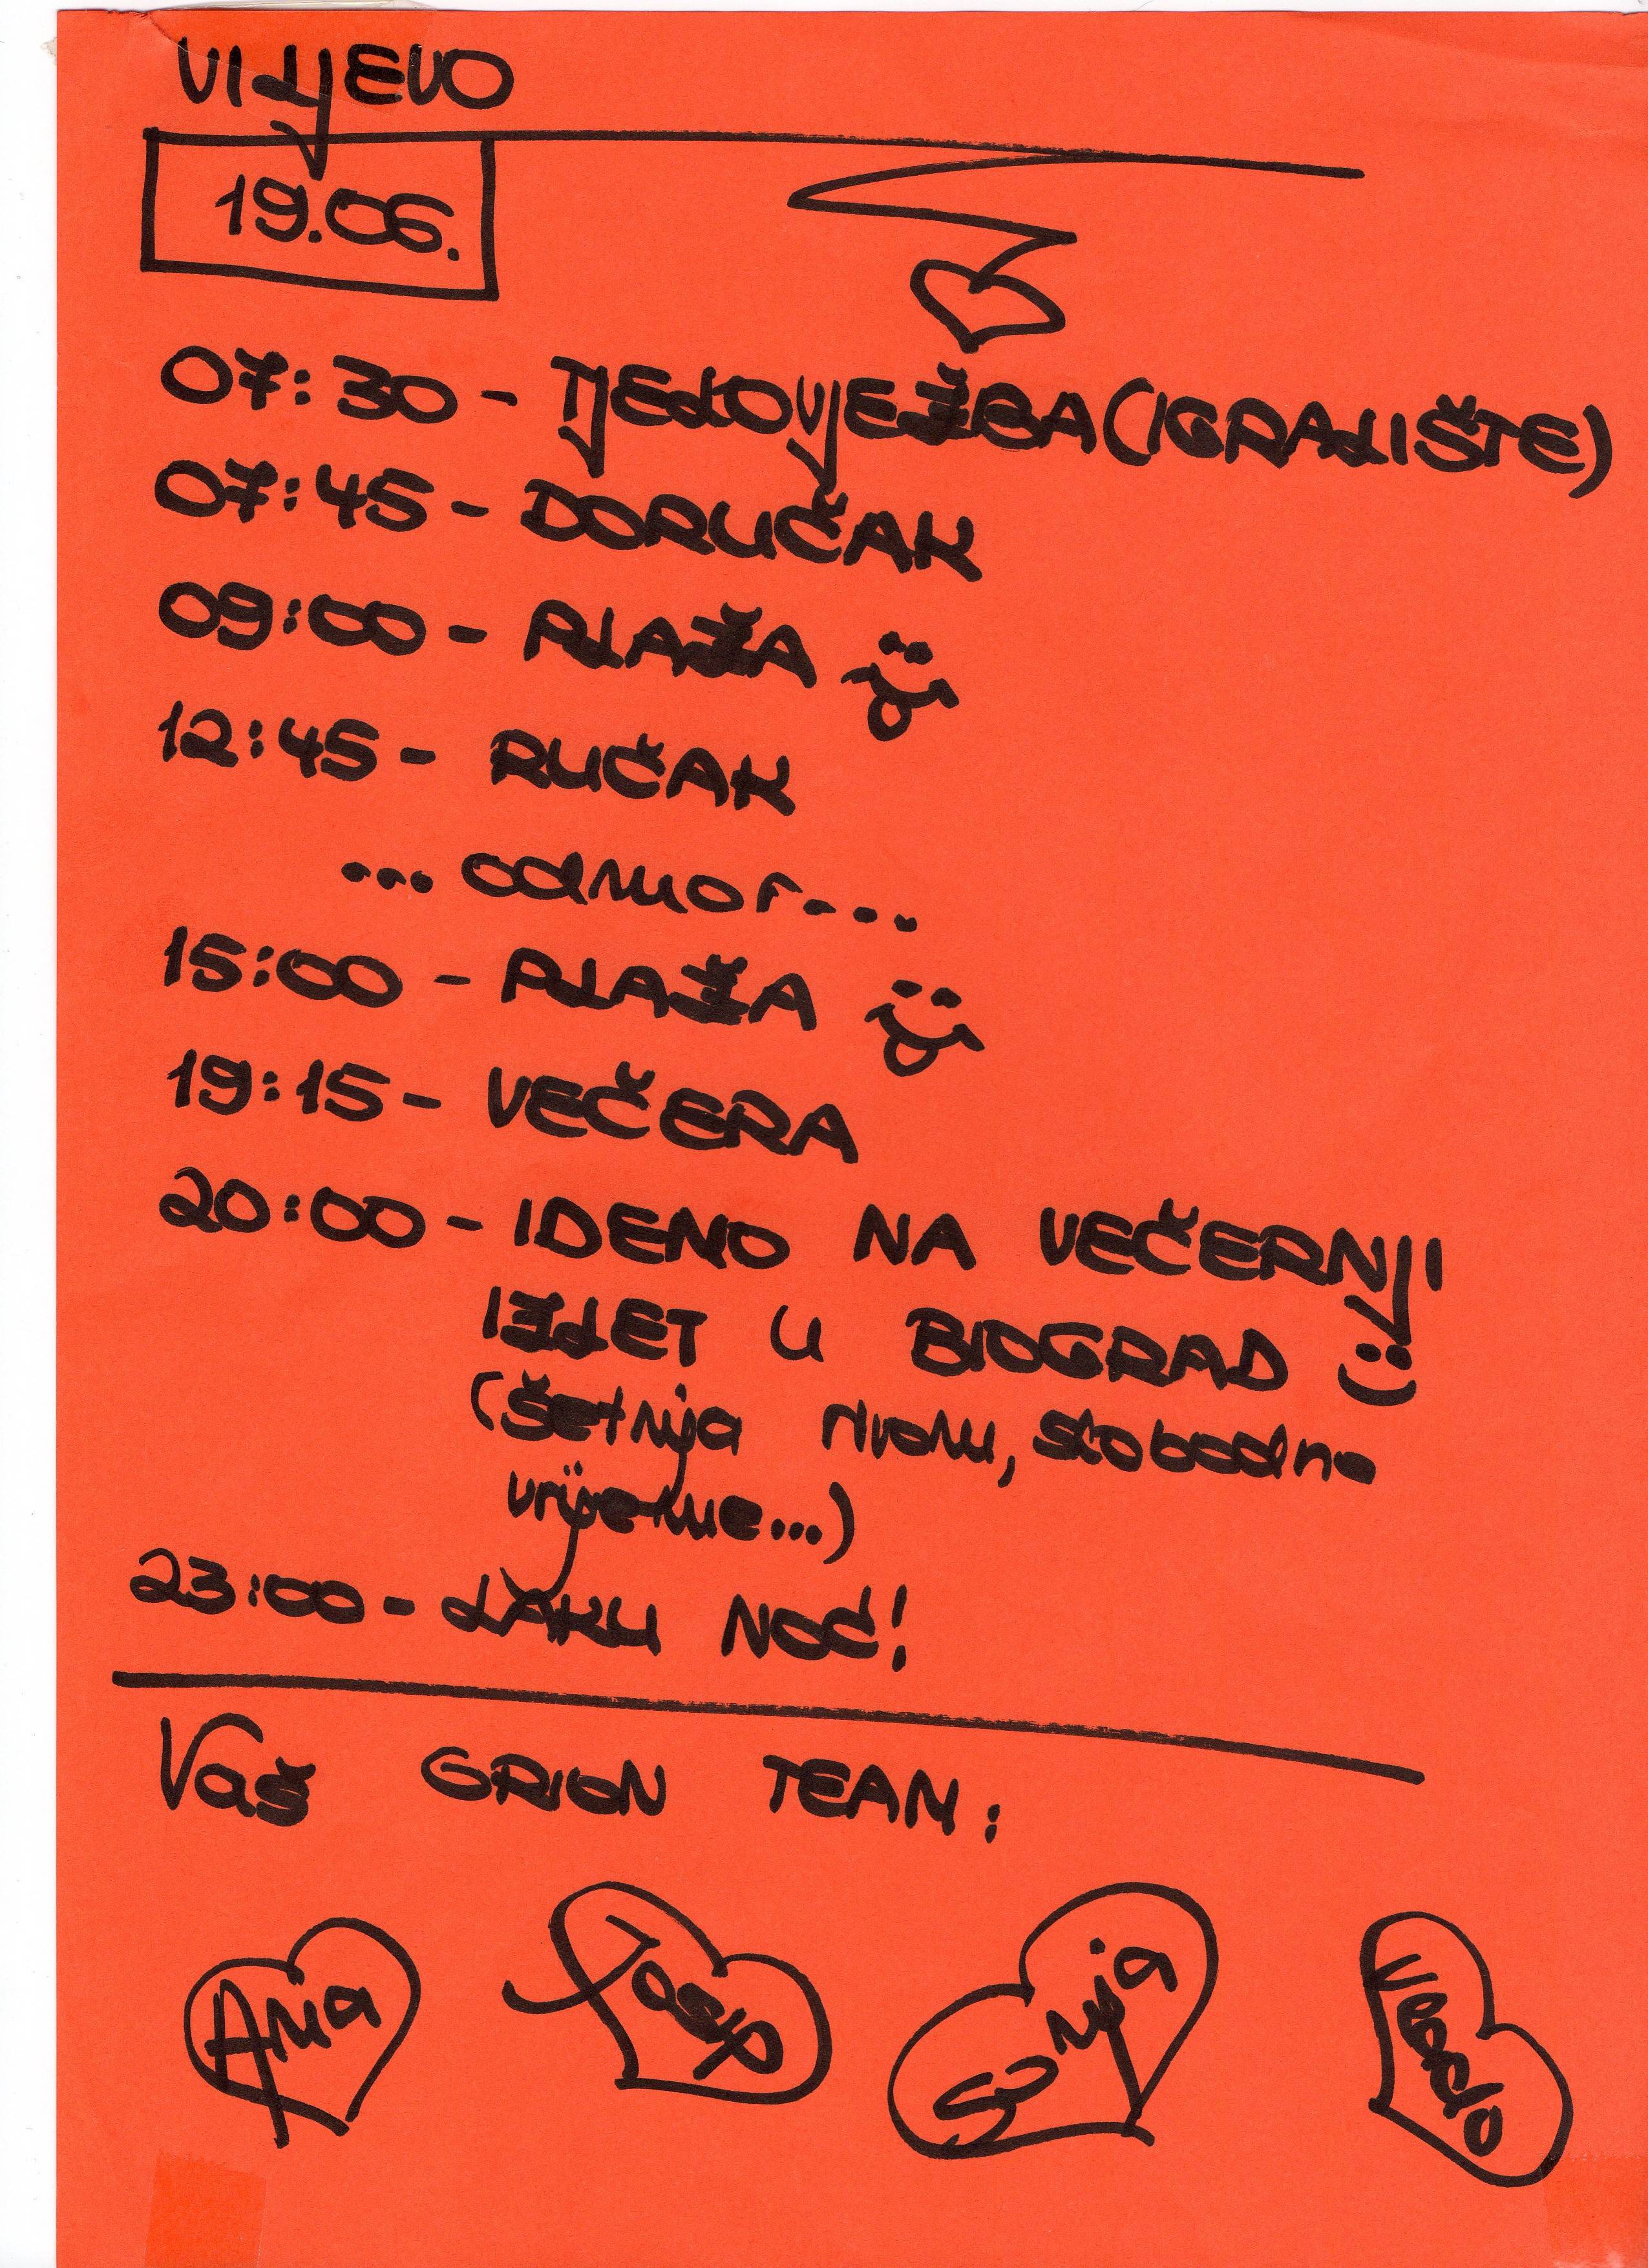 VILJEVO
19.06.
07:30 - TJELOVJEŽBA (IGRALIŠTE)
07:45 - DORUČAK
09:00 - PLAŽA
12:45 - RUČAK
... odmor ....
15:00 - PLAŽA
19:15 - VEČERA
20:00 - IDEMO NA VEČERNJI
IZLET U BIOGRAD :)
(šetnja rivom, slobodno
vrijeme...)
23:00 - LAKU NOĆ!
Vaš ORION TEAM:
Ana Josip Sonja